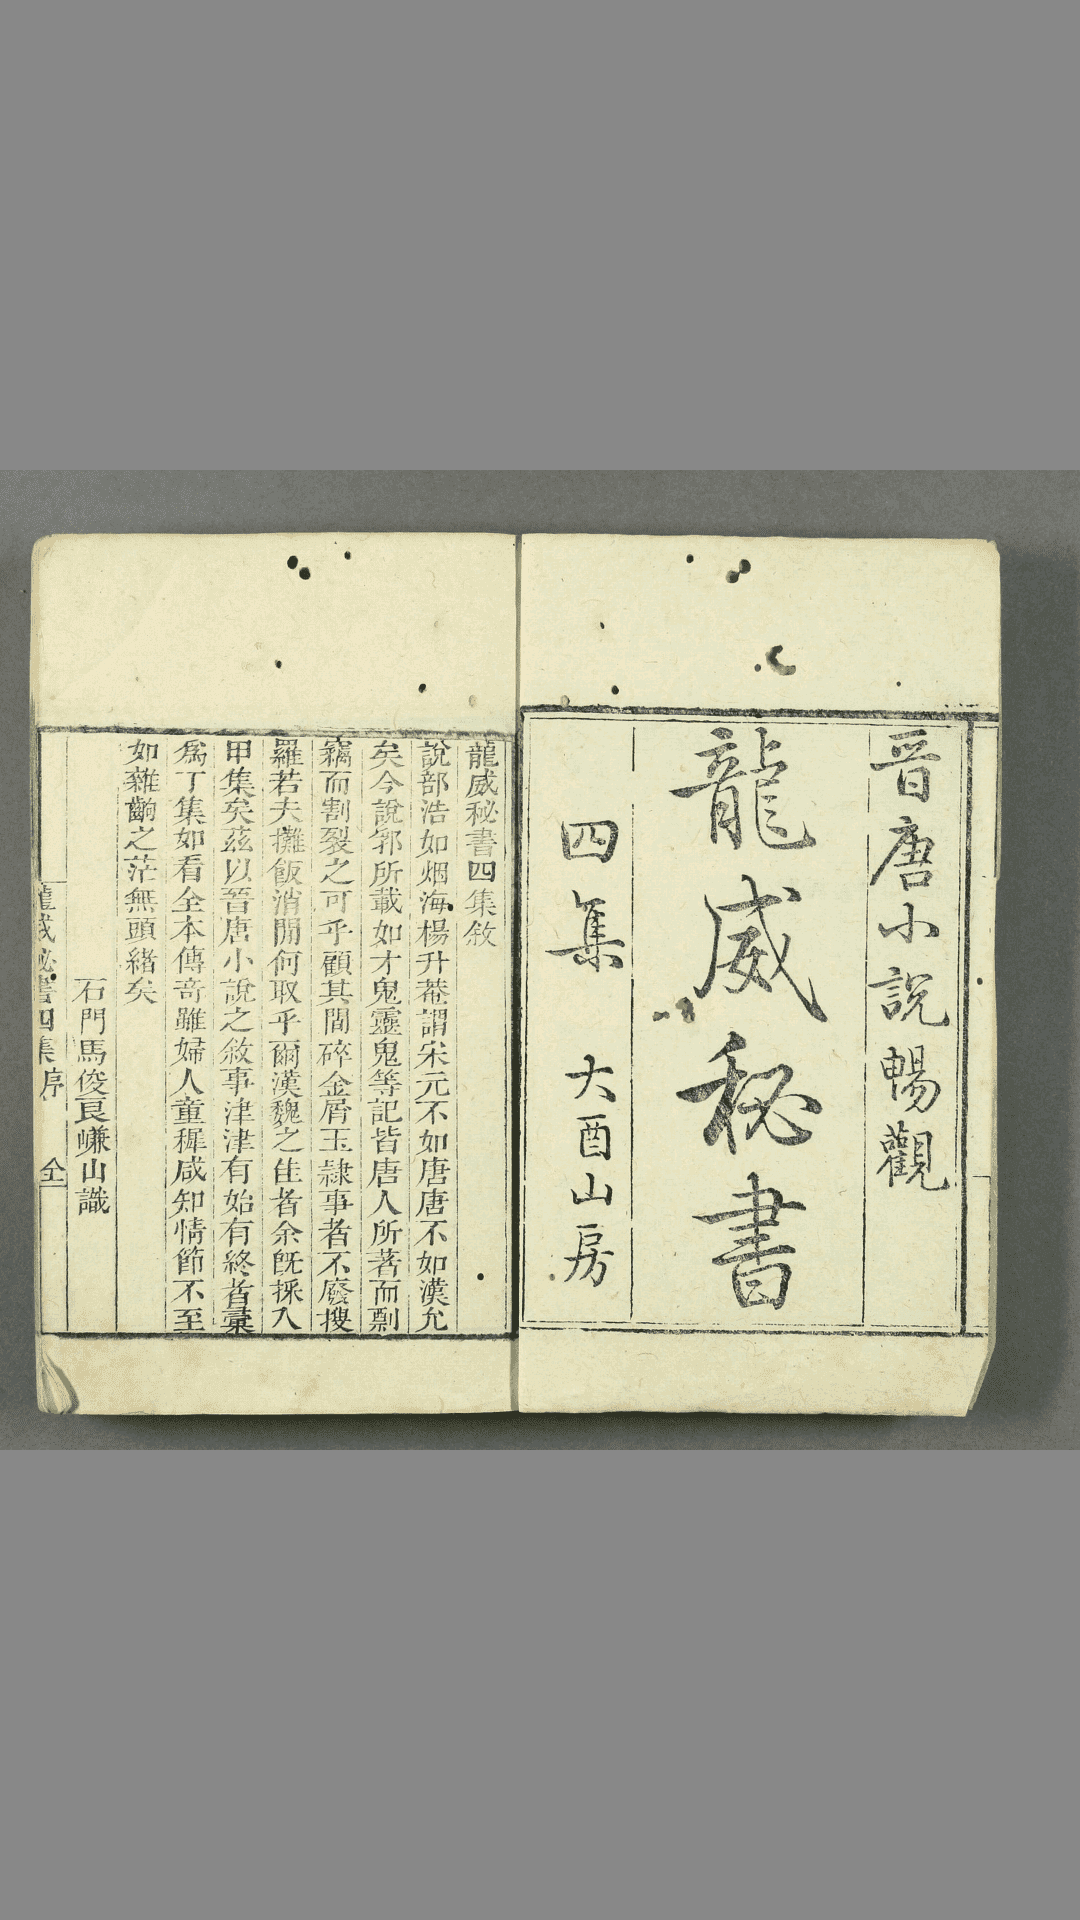 晉唐小說暢觀
龍威秘書
四集 大酉山房
龍威秘書四集敘
說部浩如烟海楊升菴謂宋元不如唐唐不如漢允
矣今說郛所載如才鬼靈鬼等記皆唐人所著而剽
竊而割裂之可乎顧其間碎金屑玉隷事者不廢搜
羅若夫攤飯消閒何取乎爾漢魏之佳者余旣採入
甲集矣茲以晉唐小說之敘事津津有始有終者彙
爲丁集如看全本傳奇雖婦人童穉咸知情節不至
如雜齣之茫無頭緒矣
石門馬俊良嵰山識
龍威秘書四集序 全